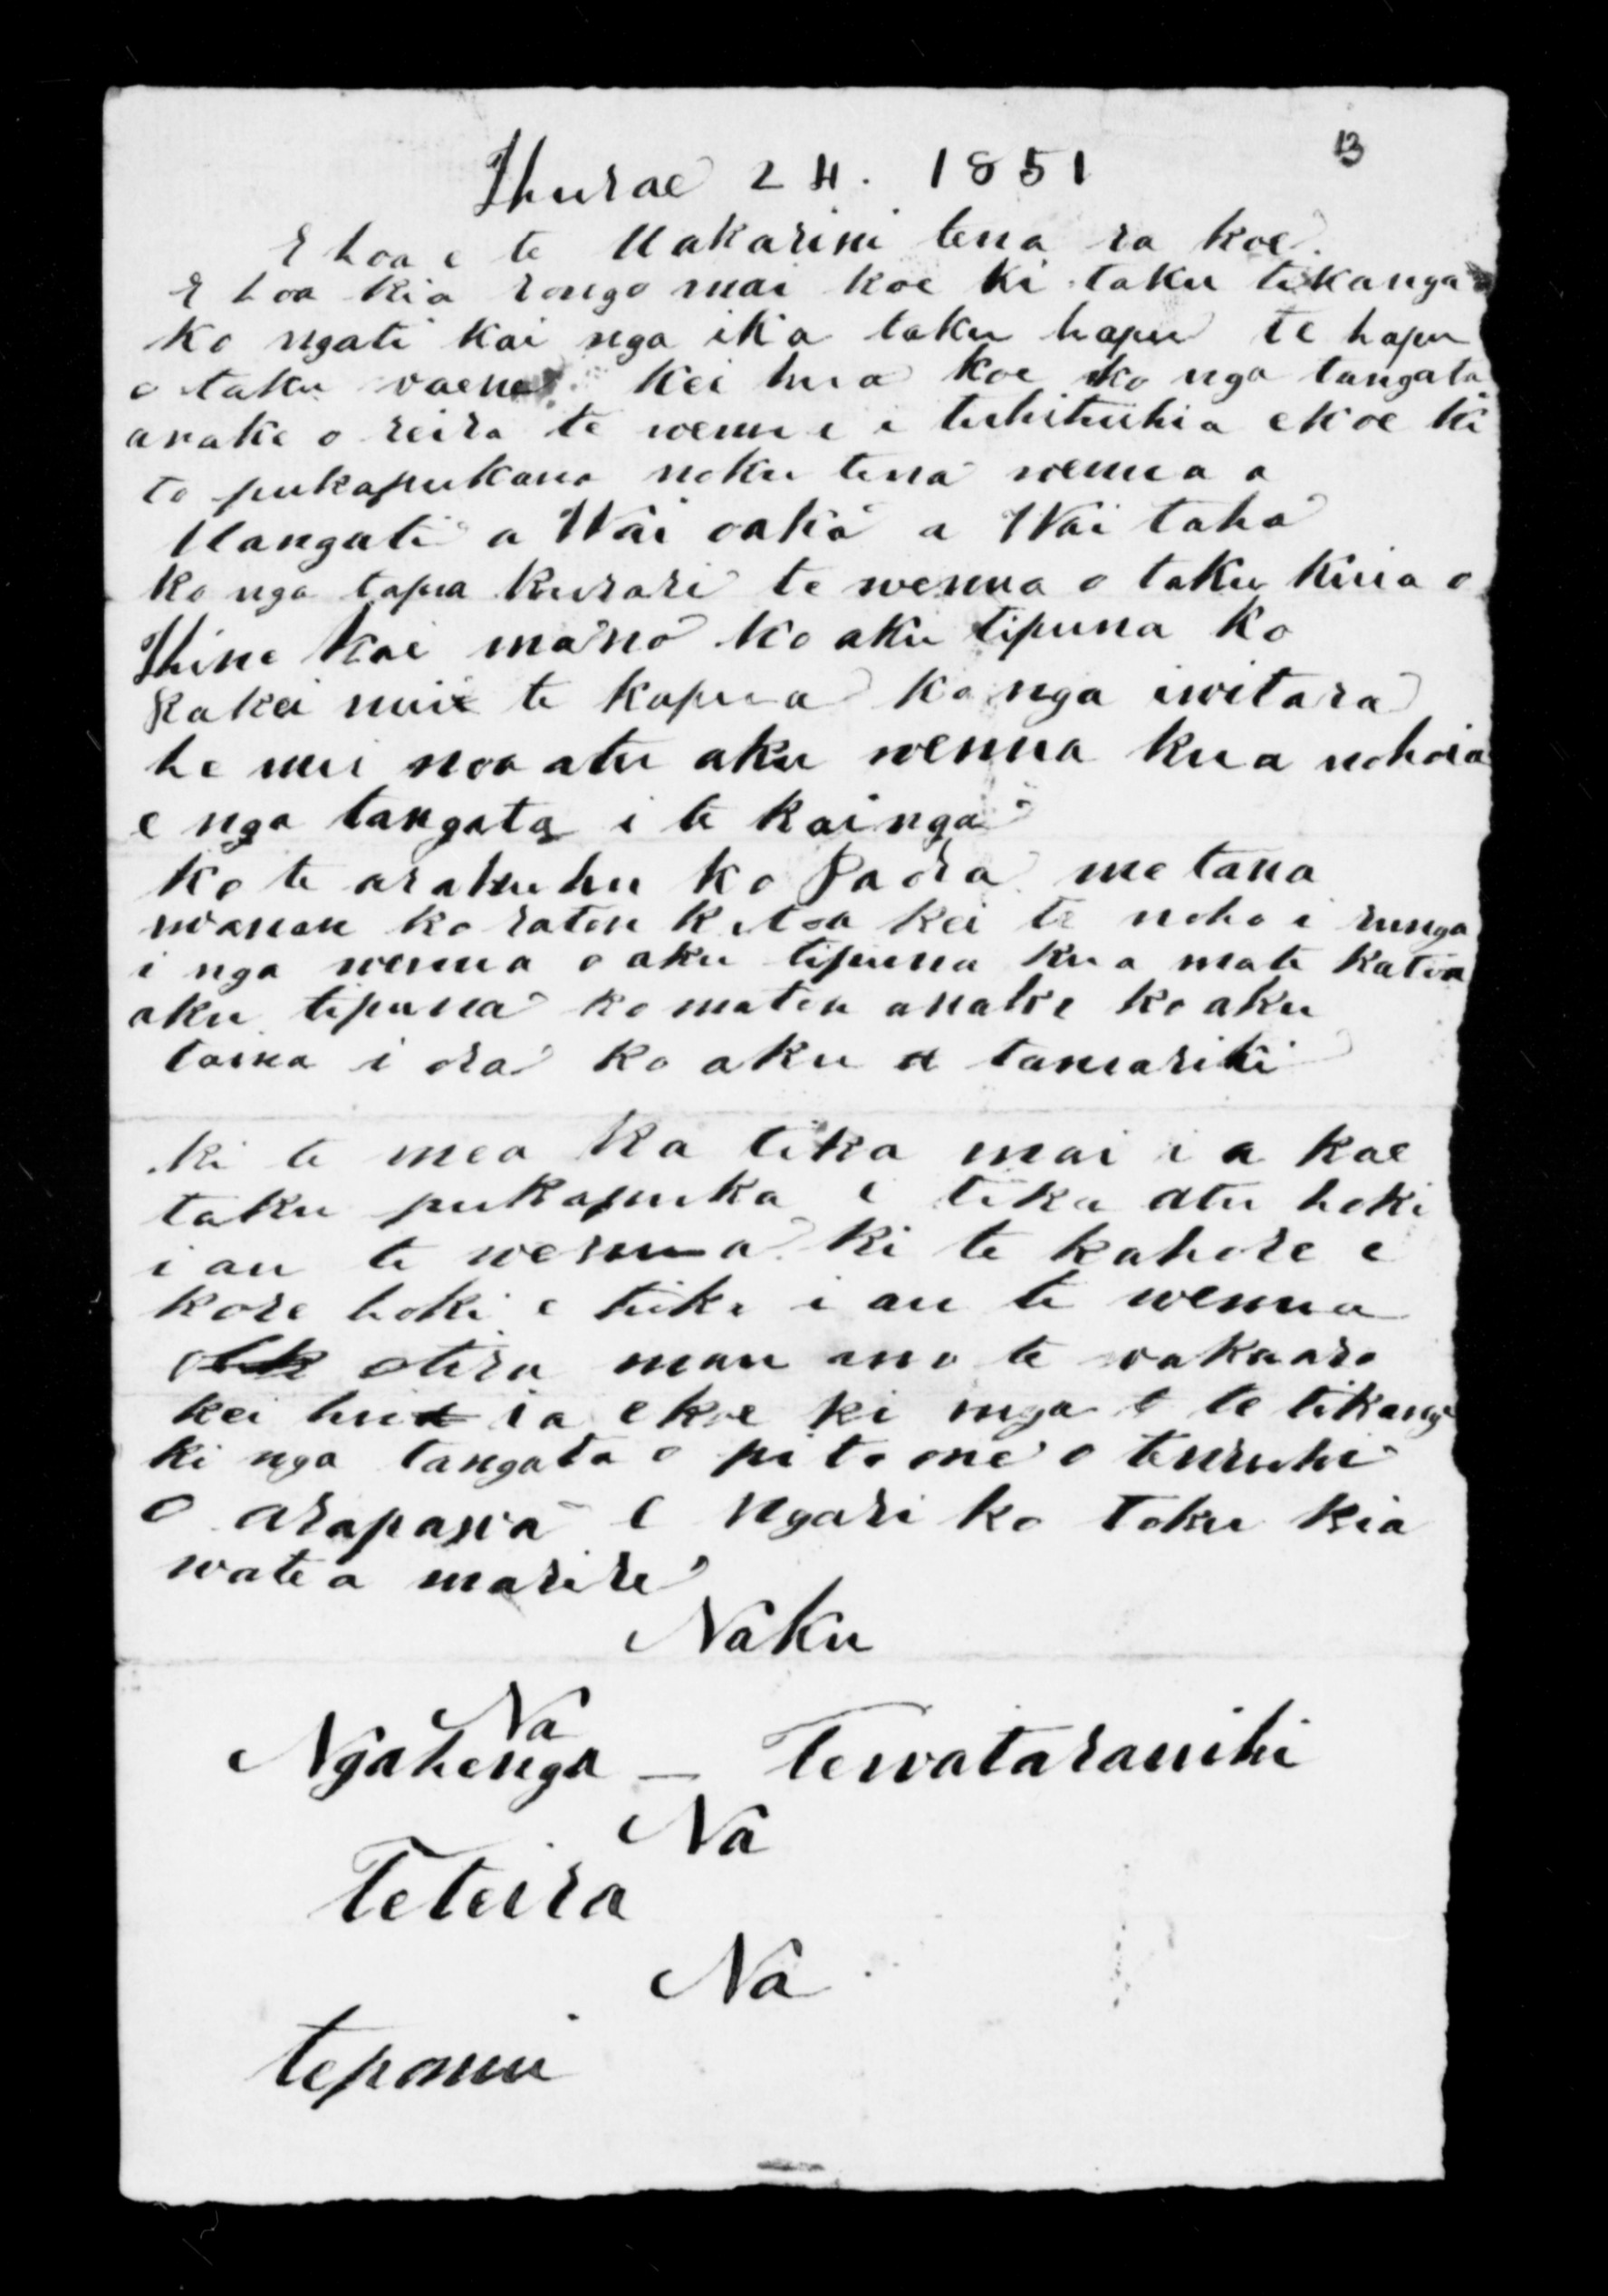 13
Hurae 24. 1851
E hoa e te Makarini tena ra koe.
E hoa kia rongo mai koe ki taku tikanga
ko ngati kai nga ika taku hapu te hapu
o taku vaene kei hua koe ko nga tangata
anake o reira te wenua i tuhituhia ekoe ki
to pukapukana noku tena wenua a
Mangati a Wai oakā a Wai taha
ko nga tapua kurari te wenua o taku kuia o
Hine kai māno ko aku tipuna ko
Rakei nui te kapua ko nga iwitara
he nui noa atu aku wenua kua nohoia
e nga tangata i te kainga
ko te arahuhu ko Paora me tana
wanau ko ratou katoa kei te noho i runga
i nga wenua o aku tipuna kua mate katoa
aku tipuna ko matou anake ko aku
taina i ora ko aku tamariki
ki te mea ka tika mai i a koe
taku pukapuka e tika atu hoki
i au te wenua ki te kahore e
kore hoki e tika i au te wenua
otira mau ano te wakaaro
kei huia ekoe ki nga te tikanga
ki nga tangata o pi to one o teuruhi
o arapawa e ngari ko toku kia
watea marire
Naku
Na
Ngahenga — Tewataranihi
Na
Teteira
Na
teponui